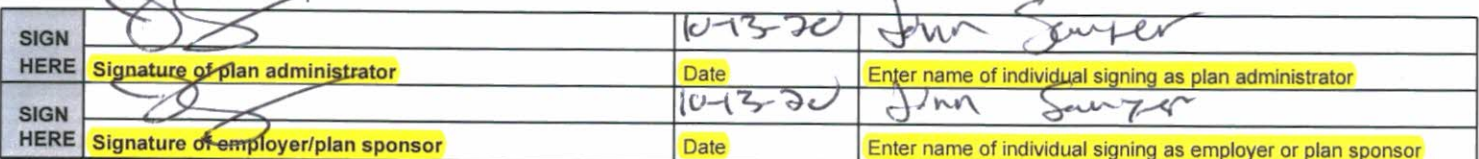 SIGN HERE
10-13-20 John Sawyer
Signature of plan administrator Date Enter name of individual signing as plan administrator
SIGN HERE
10-13-20 John Sawyer
Signature of employer/plan sponsor Date Enter name of individual signing as employer or plan sponsor